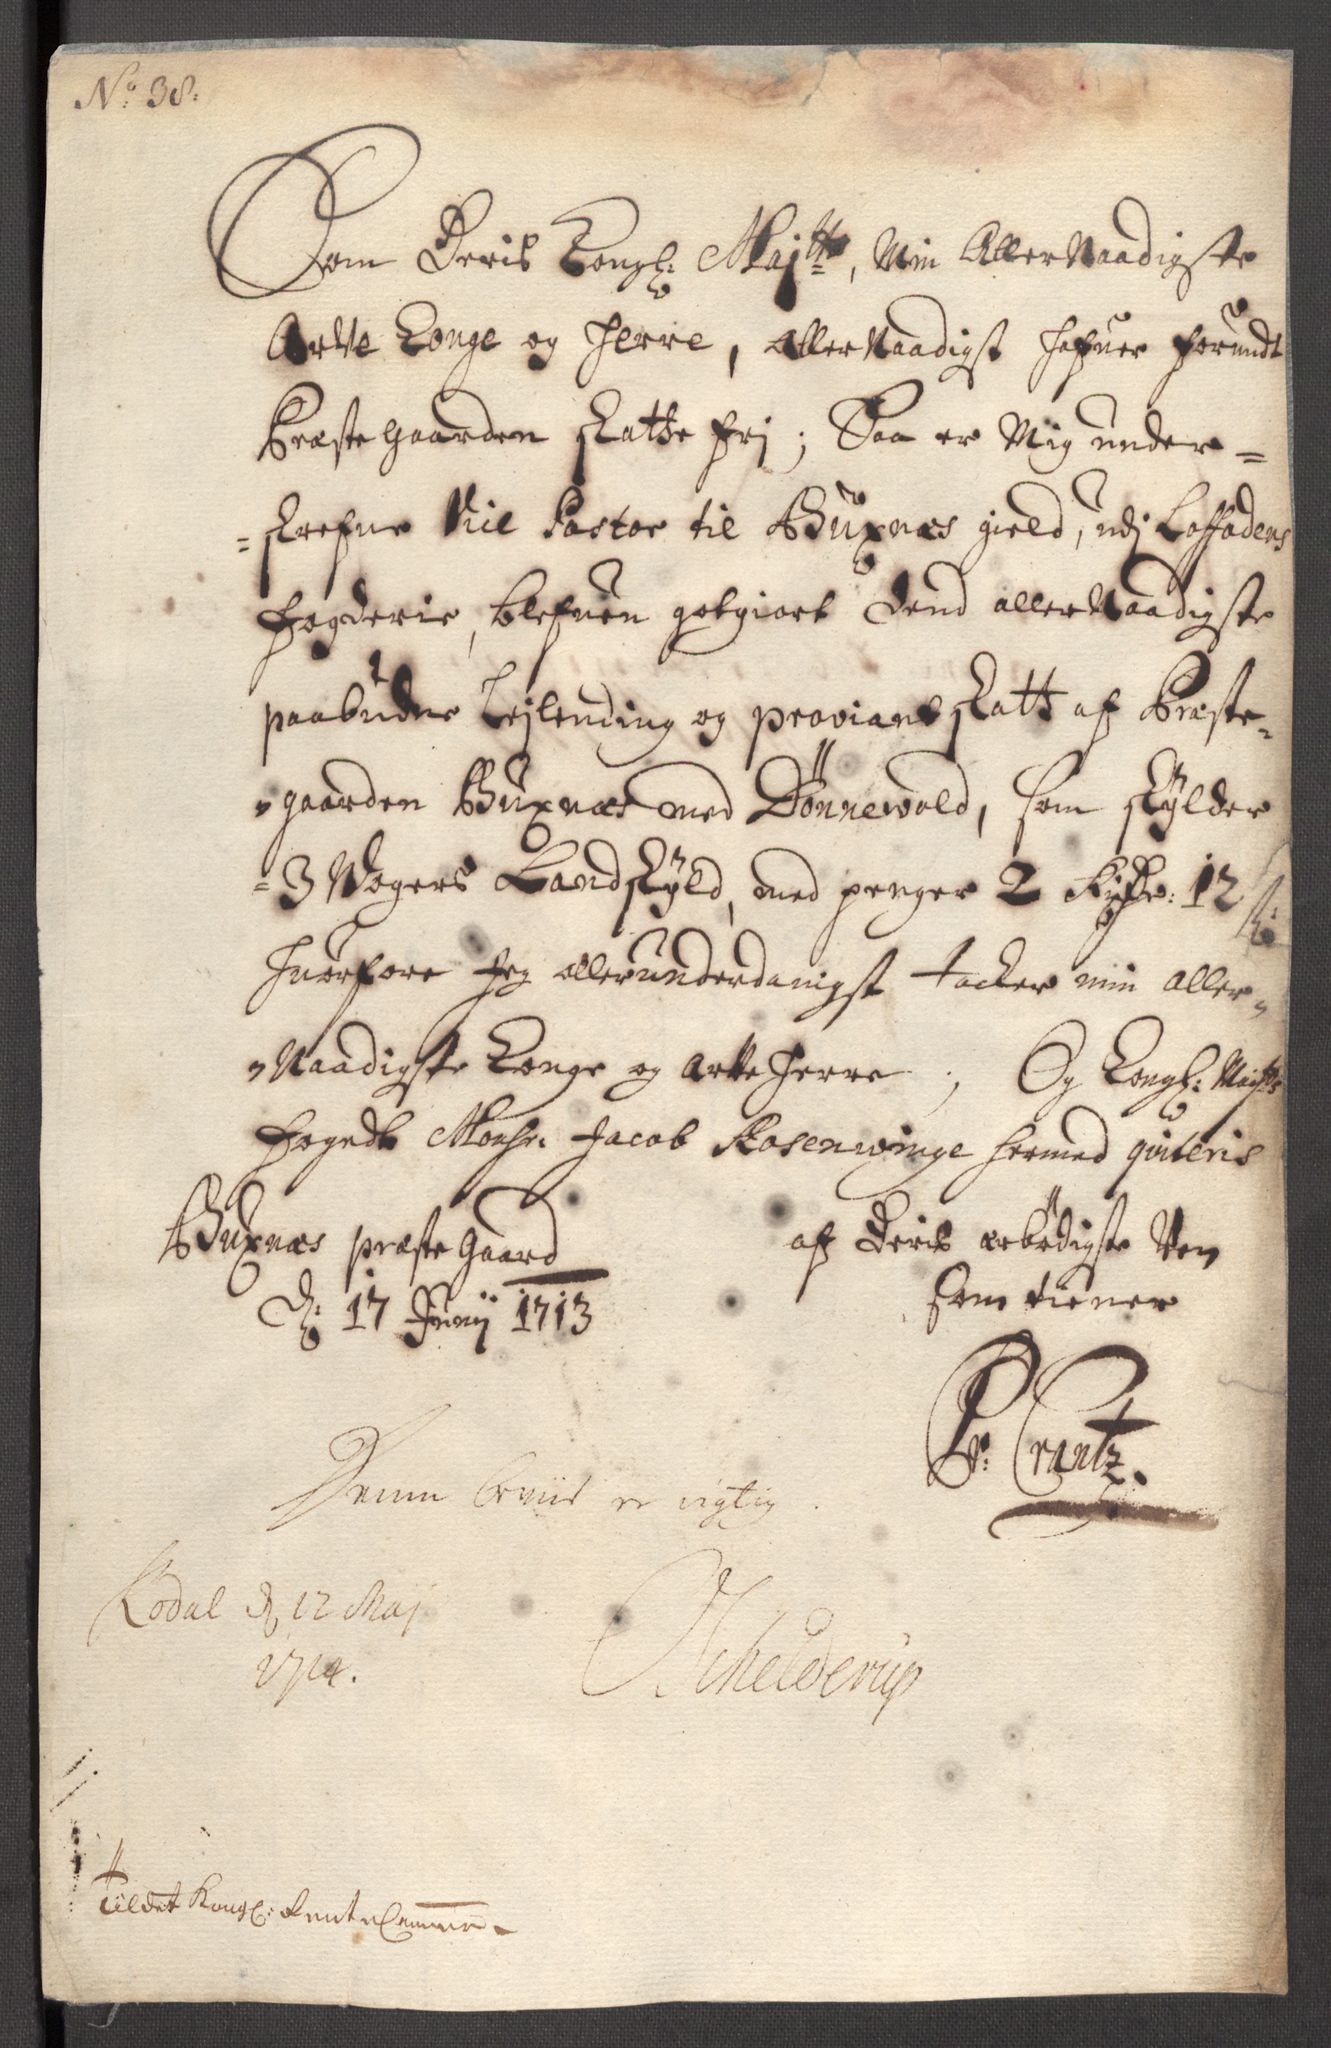 No 38.
Som Deris Kongl: Majtts, Min AllerNaadigste
ArVe Konge og Herre, AllerNaadigst hafuer forundt
Præstegaarden skatte frj; Saa er Mig under=
=skrefne Vice Pastor til Buxnæs gield, udj Loffodens
fogderie, blefuen gotgiort dend allerNaadigste
paabudne Leilending og proviant skatt af Præste-
gaarden Buxnæs med Dönnewold, som skylder
=3 Wogers Landskyld, med penger 2 Rixdr: 12 s:
huorfore Jeg allerunderdanigst tacker min aller-
Naadigste Konge og ArVe Herre; Og Kongl: Maitts
fogedt Monsr. Jacob Rosenwinge hermed qviteris
Buxnæs præste Gaard
d: 17 Junij 1713
af Deris ærbödigste Ven
som tiener
Pr: Crantz.
Denne beviis er rigtig.
Lodal d 12 Maj
1714.
Schelderup
Til det Kongl: Rente Cammer